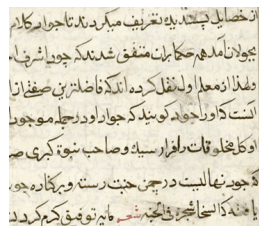 از خصایل پسندیده تعریف میکردند تا جواد کلام
بجولان آمد همه حکما بران متفق شدند که جود اشرف
و لهذا از معلم اول نقل کرده اند که فاضلترین صفتی از
آنست که او را جواد گویند که جود او در جمله موجود
او کل مخلوقات را فرا رسیده و صاحب نبوة کبری
که جود نهالیست در چمن جنت رسته و بر کناره جو
که السخا شجرة فی الجنة شعر مایه توفیق کرم کردن